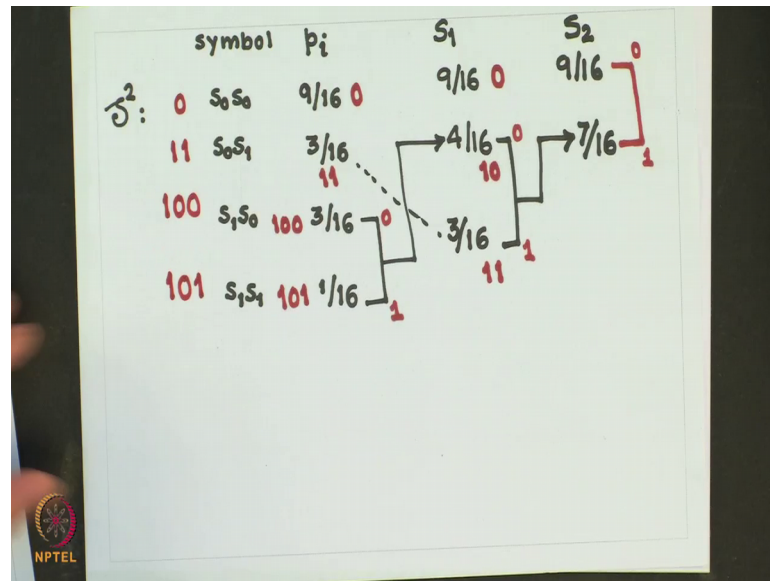 symbol pi S1 S2
𝒮²: 0 s0s0 9/16 0 9/16 0 9/16 0
11 s0s1 3/16 4/16 0 7/16 1
11 10
100 s1s0 100 3/16 0 3/16 1
11
101 s1s1 101 1/16 1
NPTEL